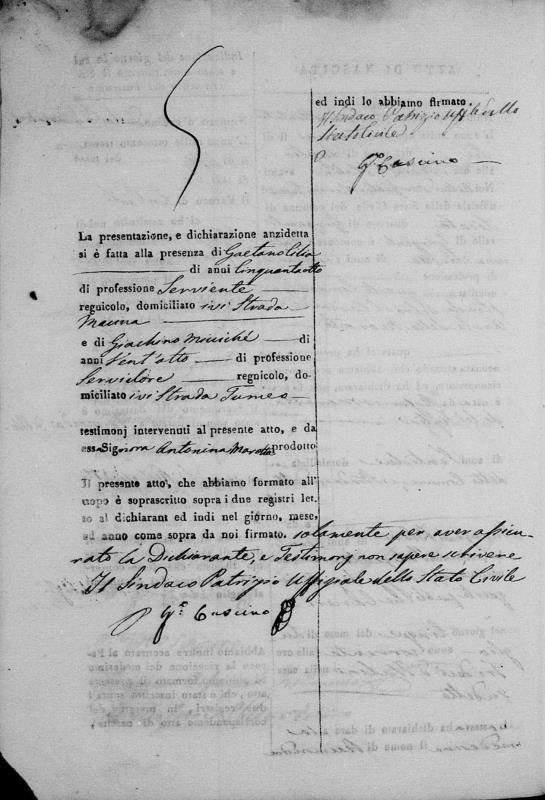 ed indi lo abbiamo firmato.
Il Sindaco Patrizio Uffle dello
Stato Civile
Gre Cuscino
La presentazione, e dichiarazione anzidetta
si è fatta alla presenza di Gaetano Cilia
di anni Cinquantaotto
di professione Serviente
regnicolo, domiciliato ivi Strada
e di Giachino Miccichè di
anni Vent'otto di professione
Servidore regnicolo, do-
miciliato ivi Strada
testimonj intervenuti al presente atto, e da
essa Signora Antonina prodotto
Il presente atto, che abbiamo formato all'
uopo è soprascritto sopra i due registri let-
to al dichiarant ed indi nel giorno, mese,
ed anno come sopra da noi firmato. solamente per aver assicu-
rato la Dichiarante, e Testimonj non sapere scrivere
Il Sindaco Patrizio Uffiziale dello Stato Civile
Gre Cuscino